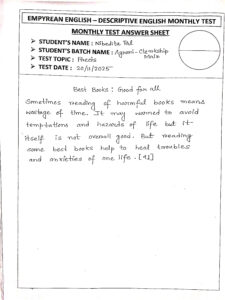 EMPYREAN ENGLISH – DESCRIPTIVE ENGLISH MONTHLY TEST
MONTHLY TEST ANSWER SHEET
➤ STUDENT'S NAME : Nibedita Pal
➤ STUDENT'S BATCH NAME : Agnani - Clerkship Main
➤ TEST TOPIC : Precis
➤ TEST DATE : 20/11/2025
Best Books : Good for all
Sometimes reading of harmful books means
wastage of time. It may warned to avoid
temptations and hazards of life but it
itself is not overall good. But reading
some best books help to heal troubles
and anxieties of one life. [41]